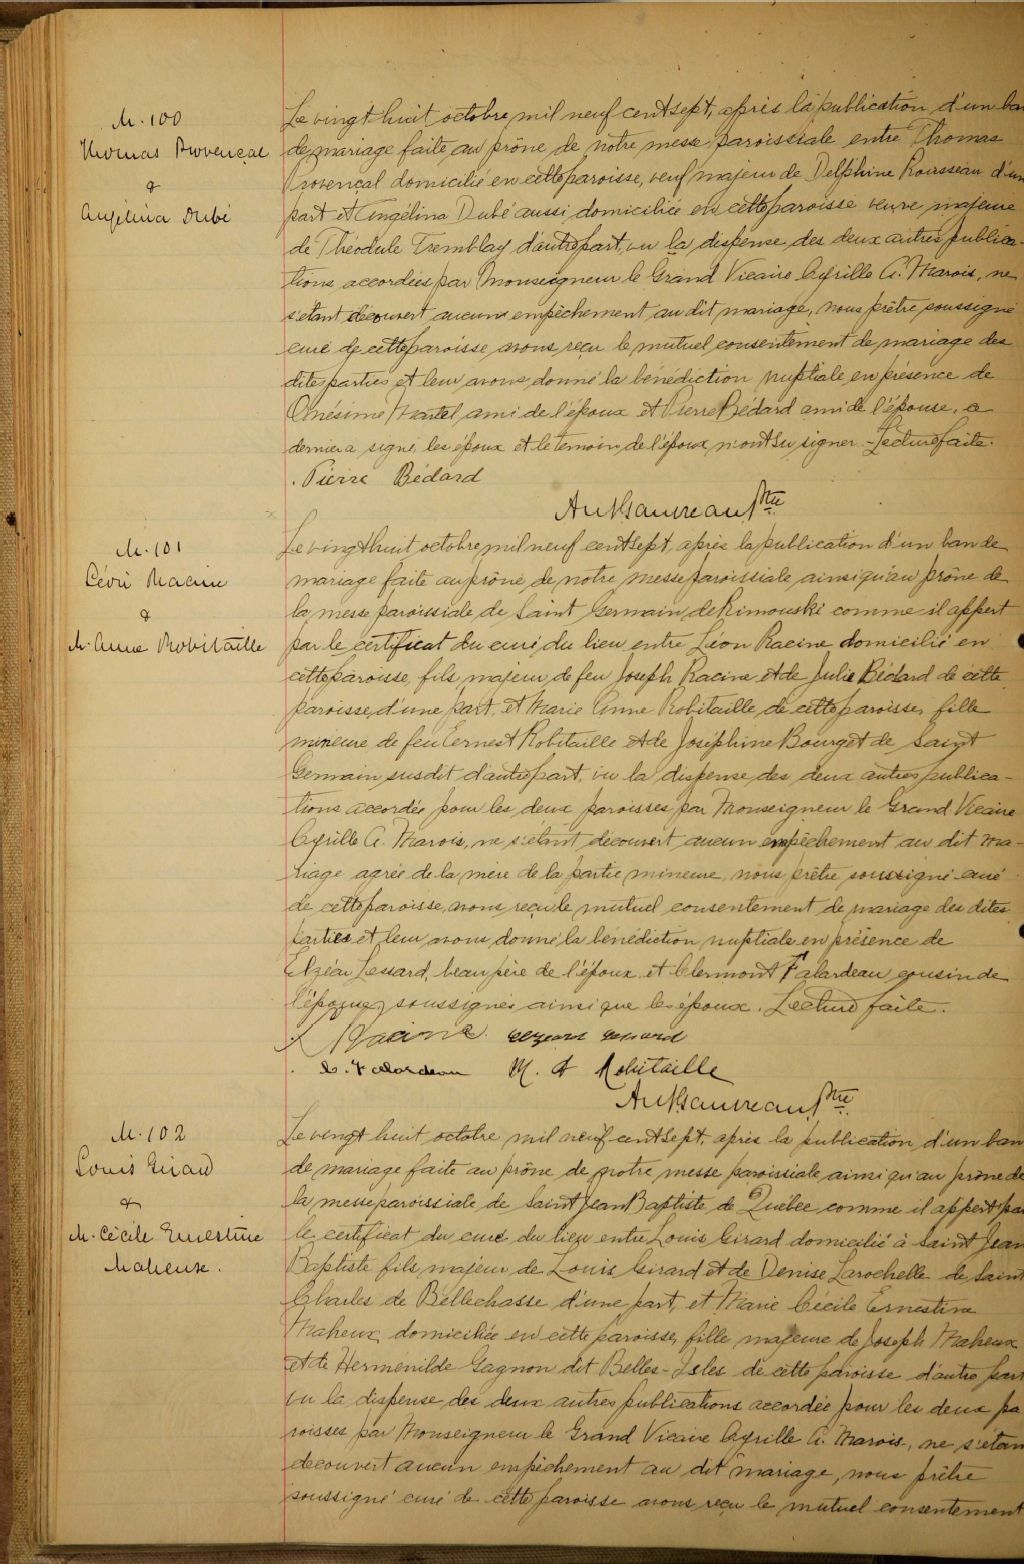 M. 100
Thomas Provençal
&
Angélina Dubé
Le vingt huit octobre mil neuf cent sept, après la publication d'un ban
de mariage faite au prône de notre messe paroissiale entre Thomas
Provençal domicilié en cette paroisse, veuf majeur de Delphine Rousseau d'une
part et Angélina Dubé aussi domiciliée en cette paroisse veuve majeure
de Théodule Tremblay d'autre part, vu la dispense des deux autres publica-
tions accordées par Monseigneur le Grand Vicaire Cyrille A. Marois, ne
s'étant découvert aucun empêchement au dit mariage, nous prêtre soussigné
curé de cette paroisse avons reçu le mutuel consentement de mariage des
dites parties et leur avons donné la bénédiction nuptiale en présence de
Onésime Martel, ami de l'époux et Pierre Bédard ami de l'épouse, ce
dernier a signé, les époux et le témoin de l'époux n'ont su signer - Lecture faite.
Pierre Bédard
Ptre
M. 101
Racine
&
M. Anne Robitaille
Le vingt huit octobre mil neuf cent sept, après la publication d'un ban de
mariage faite au prône de notre messe paroissiale ainsi qu'au prône de
la messe paroissiale de Saint Germain de Rimouski comme il appert
par le certificat du curé du lieu entre Léon Racine domicilié en
cette paroisse, fils majeur de feu Joseph Racine et de Julie Bédard de cette
paroisse, d'une part, et Marie Anne Robitaille de cette paroisse, fille
mineure de feu Ernest Robitaille et de Joséphine Bourget de Saint
Germain susdit d'autre part, vu la dispense des deux autres publica-
tions accordée pour les deux paroisses par Monseigneur le Grand Vicaire
Cyrille A. Marois, ne s'étant découvert aucun empêchement au dit ma-
riage agrée de la mère de la partie mineure, nous prêtre soussigné curé
de cette paroisse, avons reçu le mutuel consentement de mariage des dites
parties et leur avons donné la bénédiction nuptiale en présence de
Elzéar Lessard, beau père de l'époux et Clermont Falardeau cousin de
l'épouse, soussignés ainsi que les époux. Lecture faite.
Racine Elzear Lessard
C. Falardeau M. A Robitaille
Ptre
M. 102
Louis Girard
&
M. Cécile Ernestine
Maheux.
Le vingt huit octobre mil neuf cent sept, après la publication d'un ban
de mariage faite au prône de notre messe paroissiale ainsi qu'au prône de
la messe paroissiale de Saint Jean Baptiste de Québec comme il appert par
le certificat du curé du lieu entre Louis Girard domicilié à Saint Jean
Baptiste fils majeur de Louis Girard et de Denise Larochelle de Saint
Charles de Bellechasse d'une part, et Marie Cécile Ernestine
Maheux domiciliée en cette paroisse, fille majeure de Joseph Maheux
et de Herménilde Gagnon dit Belles-Isles de cette paroisse d'autre part
vu la dispense des deux autres publications accordée pour les deux pa
roisses par Monseigneur le Grand Vicaire Cyrille A. Marois, ne s'étan
découvert aucun empêchement au dit mariage, nous prêtre
soussigné curé de cette paroisse avons reçu le mutuel consentement